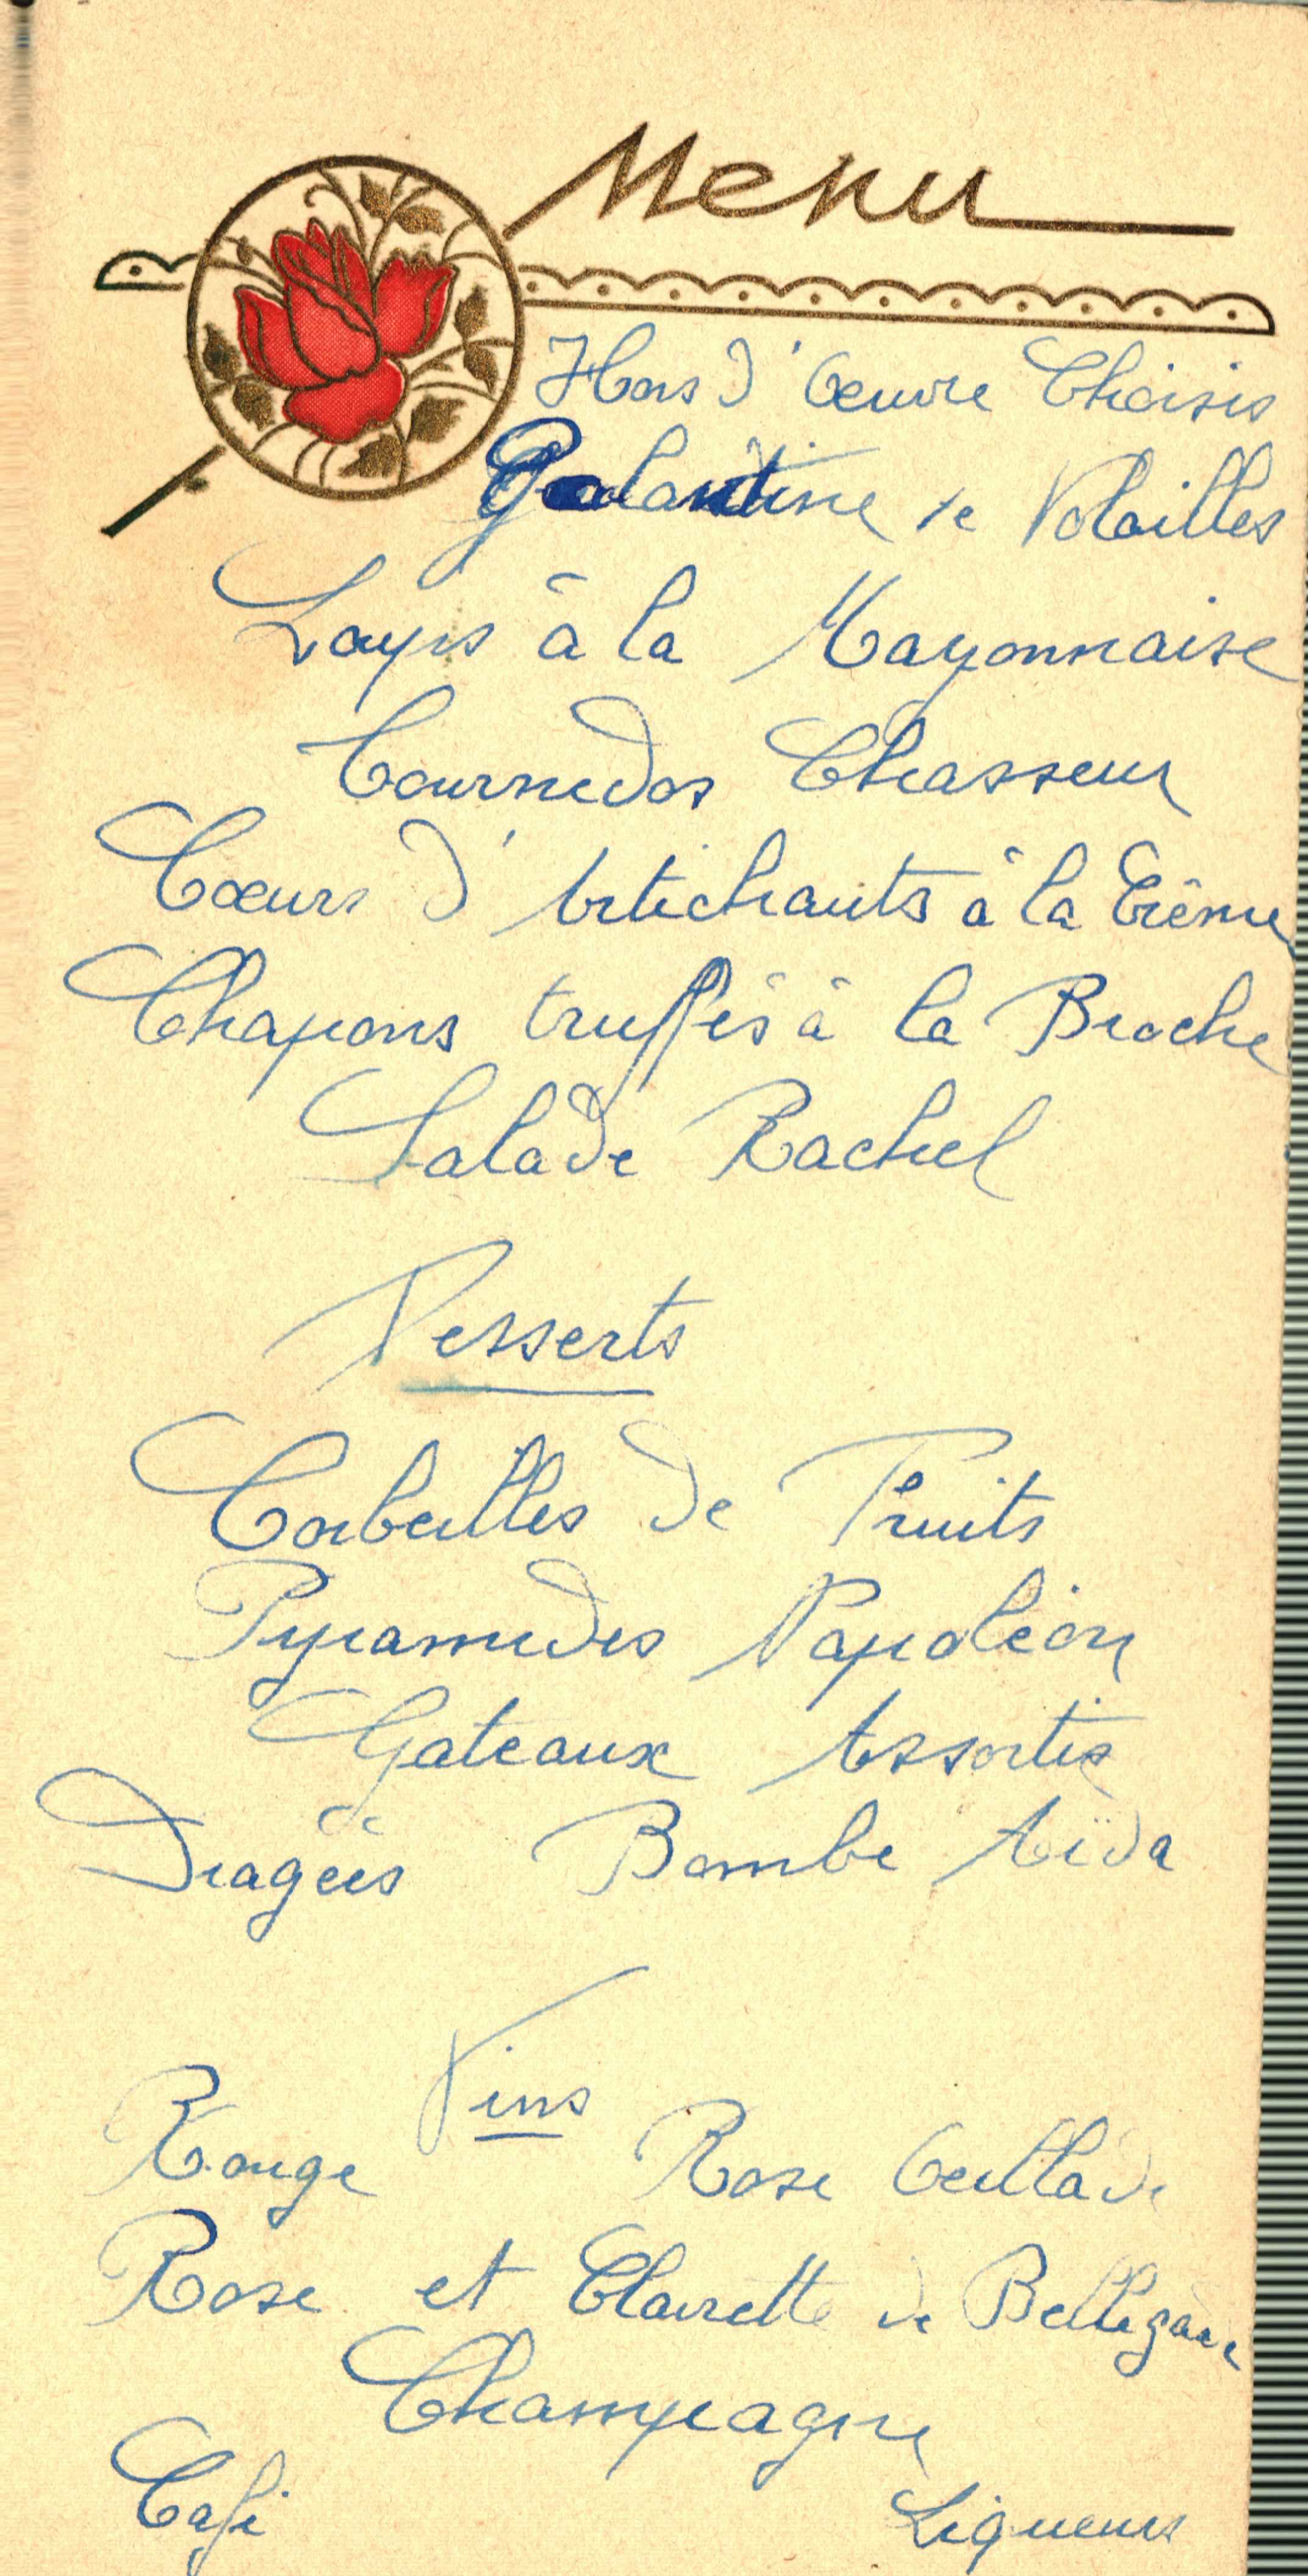 Menu
Hors d'Oeuvre Choisis
Galantine de Volailles
Loups à la Mayonnaise
Tournedos Chasseur
Coeurs d'Artichauts à la Crème
Chapons truffés à la Broche
Salade Rachel
Desserts
Corbeilles de Fruits
Pyramides Napoléon
Gateaux Assortis
Dragées Bombe Aïda
Vins
Rouge Rose Oeillade
Rose et Clairette de Bellegarde
Champagne
Café Liqueurs